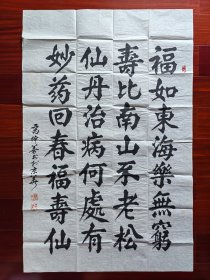 福如東海樂無窮
壽比南山不老松
仙丹治病何處有
妙药回春福壽仙